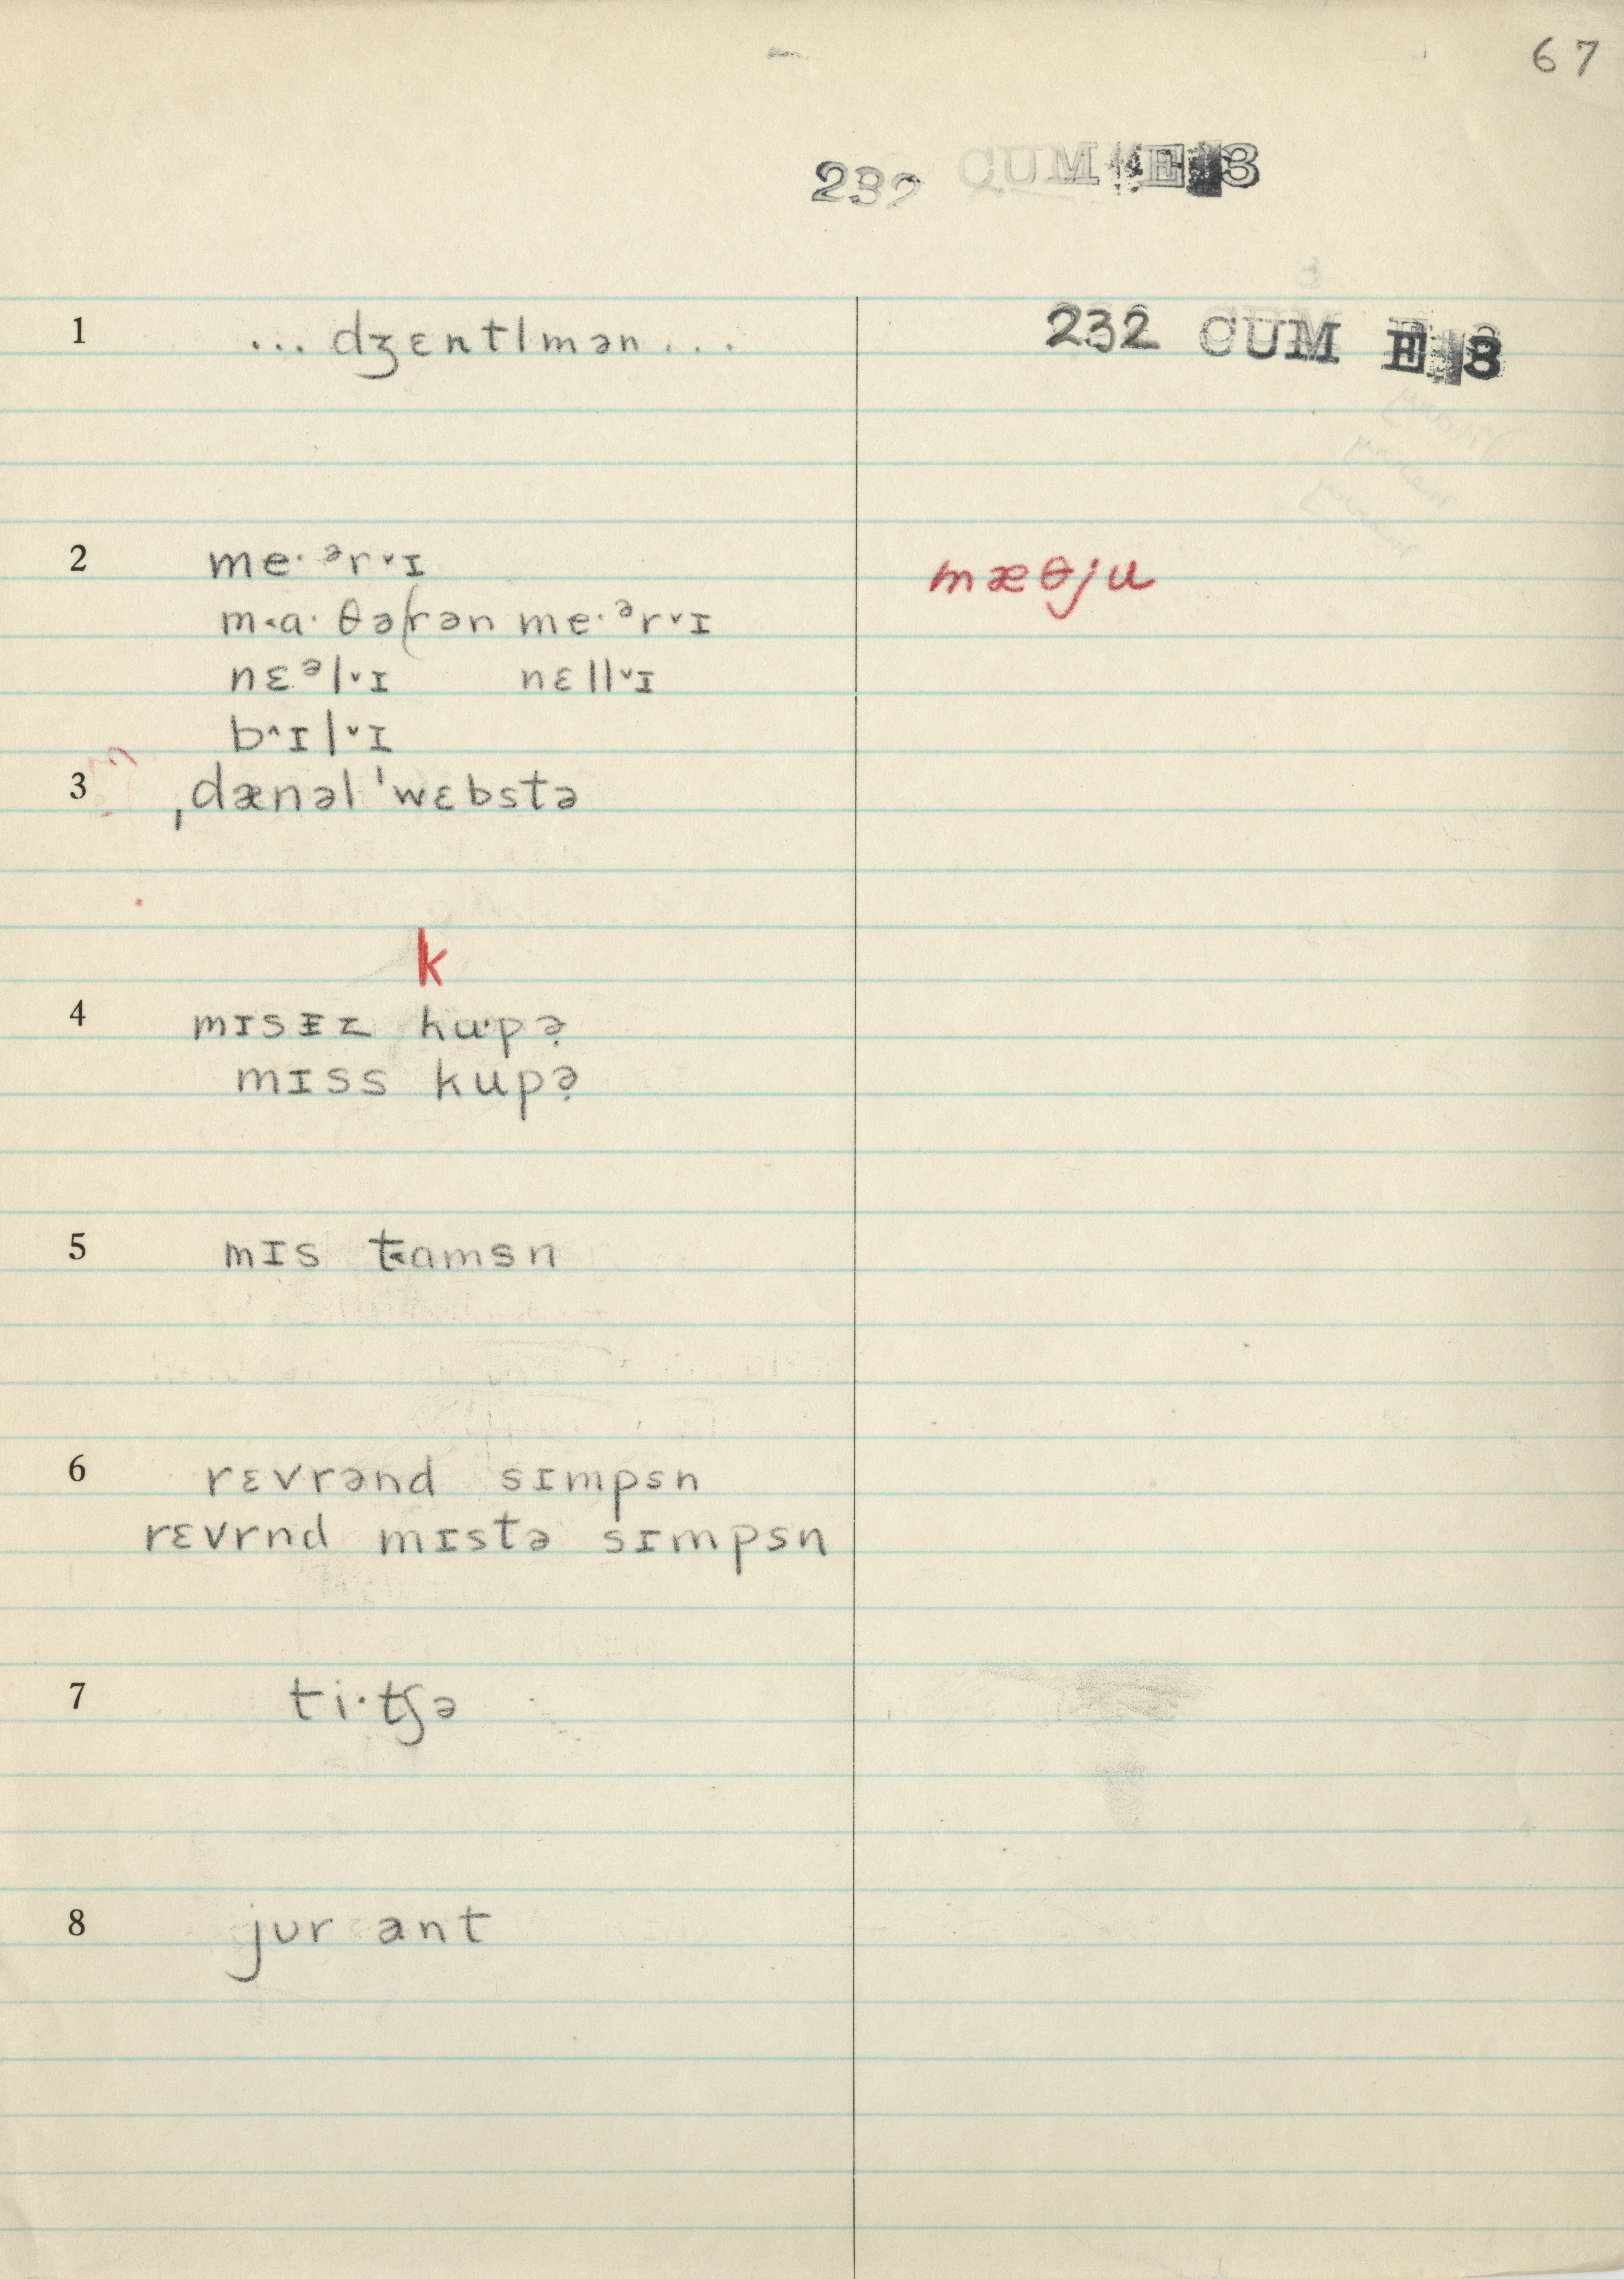 67
232 CUM E 3
1 ... dʒɛntlmən ... 232 CUM E 3
2 me· ᵊr˅ɪ mæθju
m˂a· θə(rən me·ᵊr˅ɪ
nɛᵊl˅ɪ nɛll˅ɪ
b˄ɪl˅ɪ
3 ˌdænəl ˈwɛbstə
k
4 mɪsɪ̵z ku·pə̣
mɪss kupə̣
5 mɪs t˂amsn
6 rɛvrənd sɪmpsn
rɛvrnd mɪstə sɪmpsn
7 ti·tʃə
8 jʊr ant